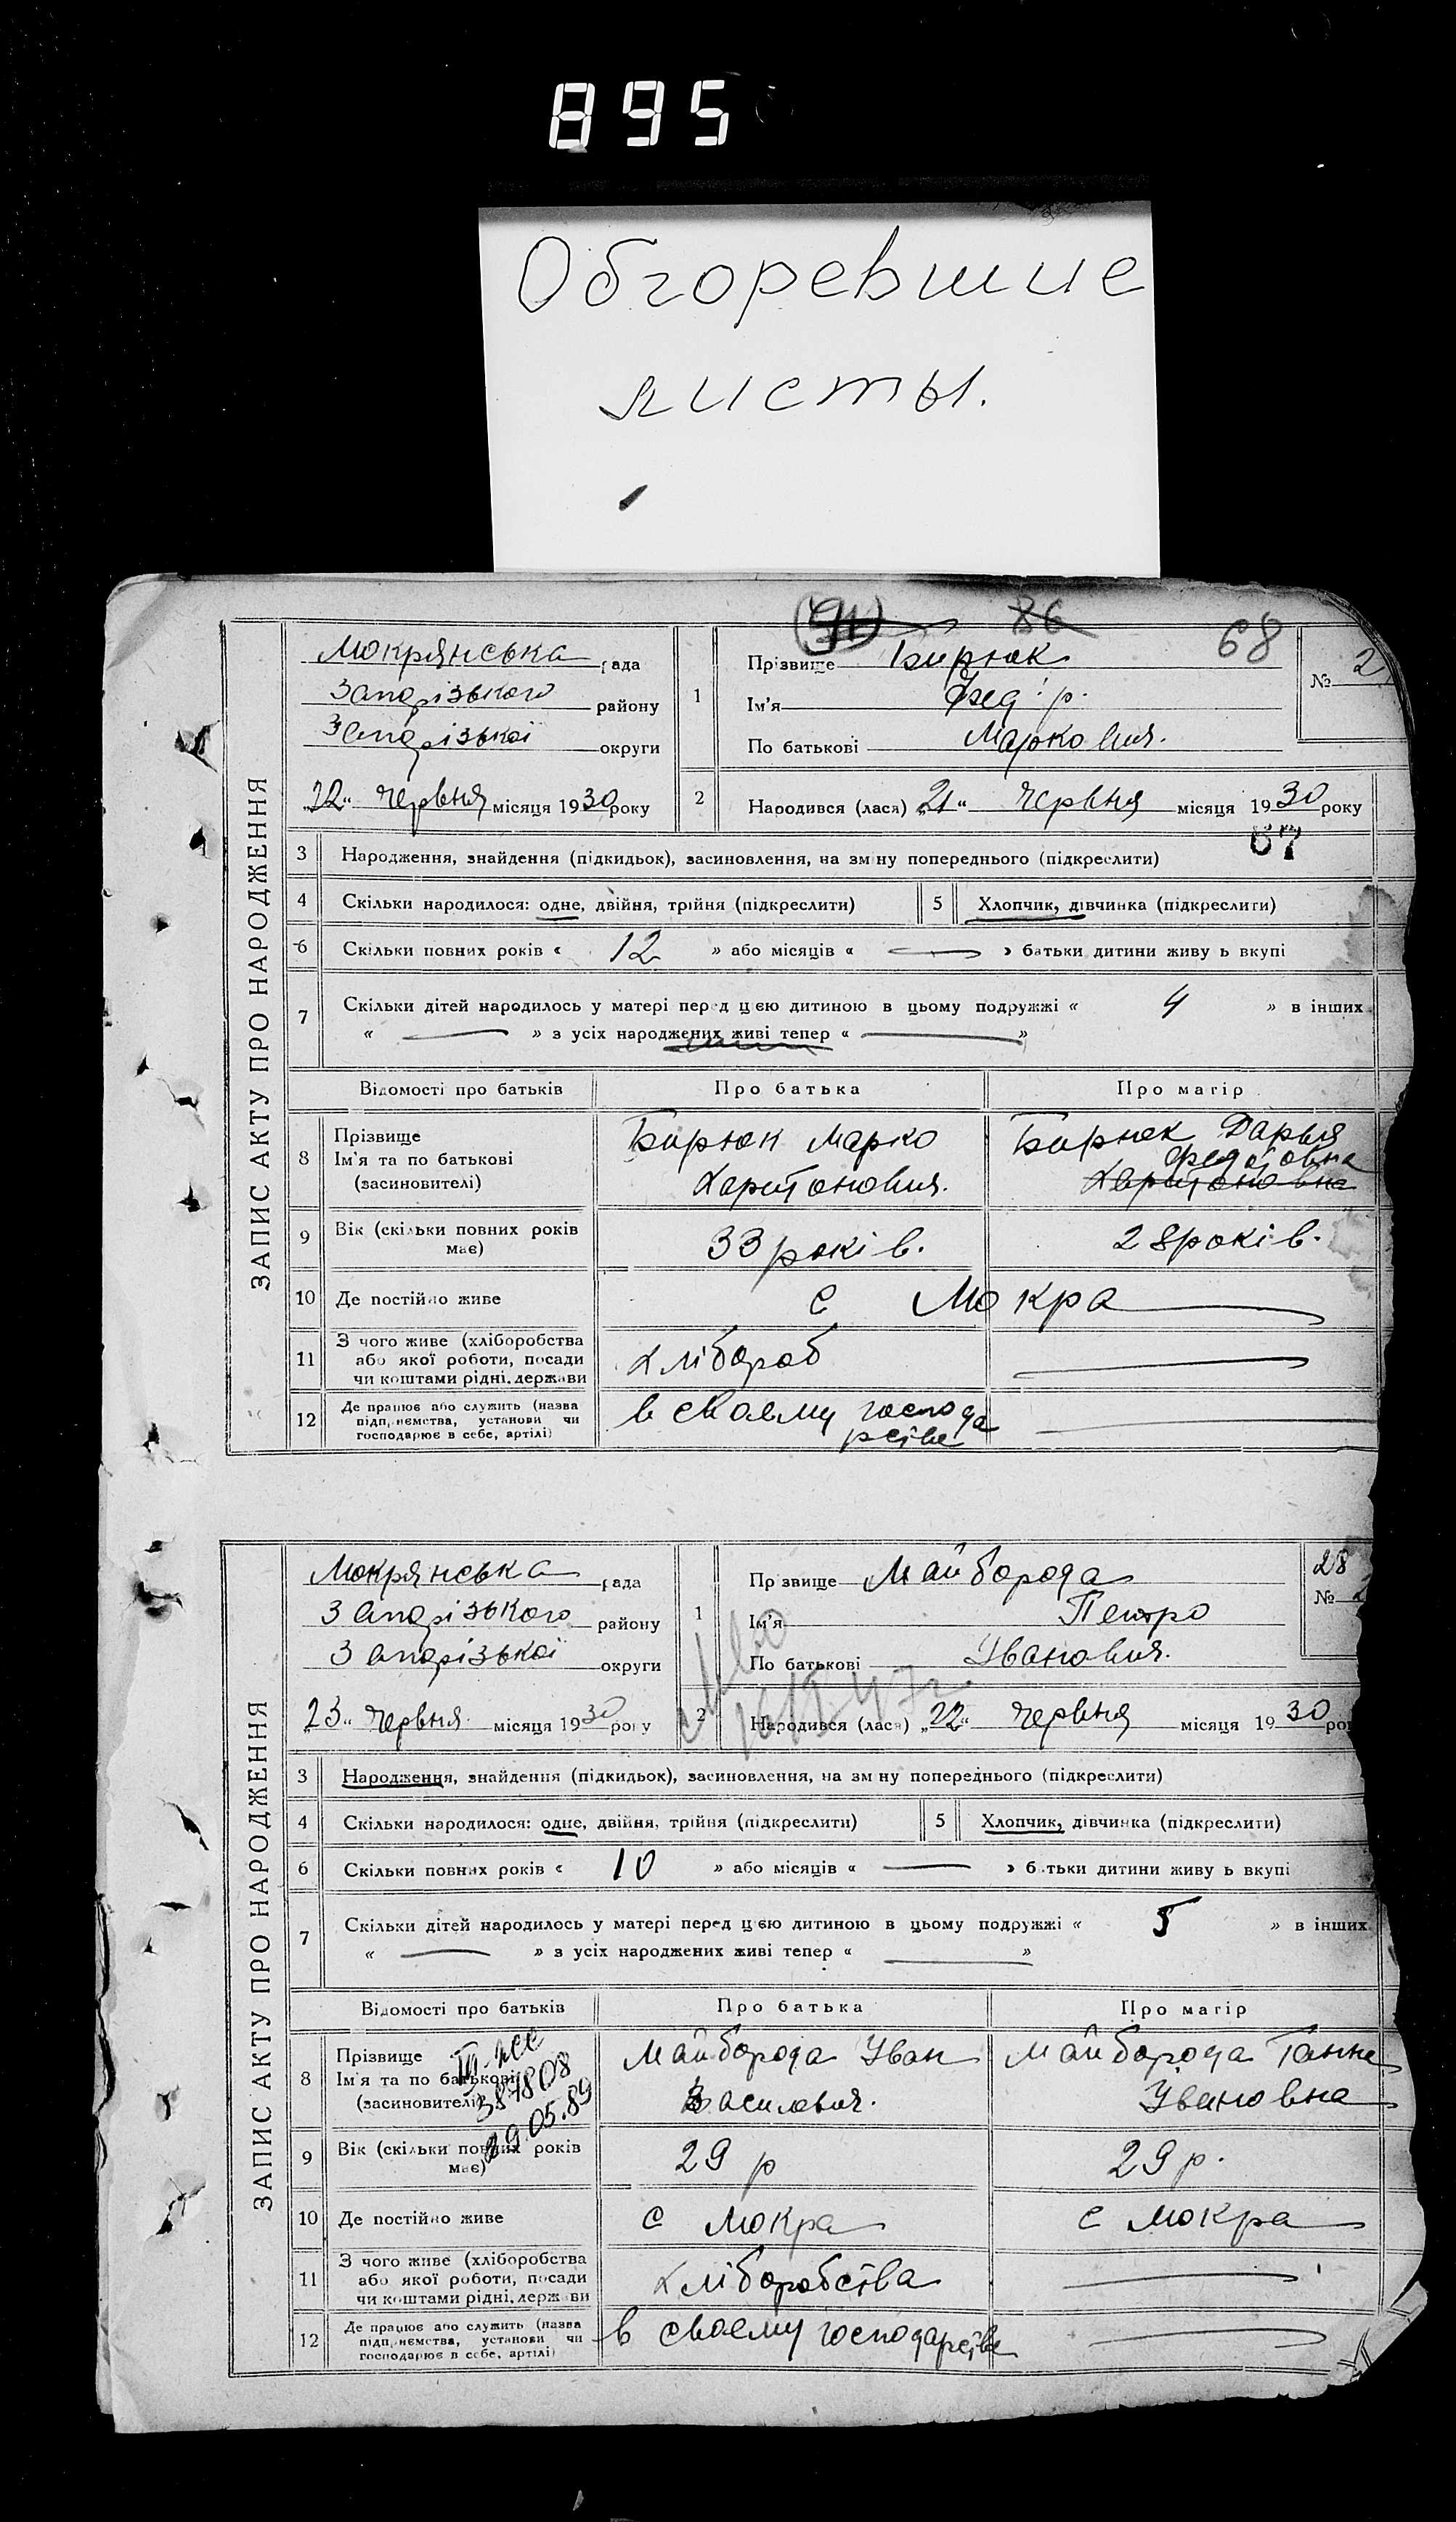 895
Обгоревшие
листы.
86
68
Мокрянська рада
Прізвище Бирюк
№ 2
Запорізького району
1
Ім'я Фед.р.
Запорізької округи
По батькові Маркович.
„22“ червня місяця 1930 року
2
Народився (лася) „21“ червня місяця 1930 року
67
ЗАПИС АКТУ ПРО НАРОДЖЕННЯ
3 Народження, знайдення (підкидьок), засиновлення, на зміну попереднього (підкреслити)
4 Скільки народилося: одне, двійня, трійня (підкреслити) 5 Хлопчик, дівчинка (підкреслити)
6 Скільки повних років « 12 » або місяців « — » батьки дитини живуть вкупі
7 Скільки дітей народилось у матері перед цією дитиною в цьому подружжі « 4 » в інших
« — » з усіх народжених живі тепер « — »
Відомості про батьків Про батька Про матір
8 Прізвище Ім'я та по батькові (засиновителі)
Бирюк Марко
Харитонович.
Бирюк Дарья
Федотовна
Харитоновна
9 Вік (скільки повних років має) 33 років. 28 років.
10 Де постійно живе с Мокра
11 З чого живе (хліборобства
або якої роботи, посади
чи коштами рідні, держави
хлібороб —
12 Де працює або служить (назва
підприємства, установи чи
господарює в себе, артілі)
в своему господа
рстве —
Мокрянська рада
Прізвище Майборода
28
№ 2
Запорізького району
1
Ім'я Петро
Запорізької округи
По батькові Іванович.
„23“ червня місяця 1930 року
2
Народився (лася) „22“ червня місяця 1930 року
ЗАПИС АКТУ ПРО НАРОДЖЕННЯ
3 Народження, знайдення (підкидьок), засиновлення, на зміну попереднього (підкреслити)
4 Скільки народилося: одне, двійня, трійня (підкреслити) 5 Хлопчик, дівчинка (підкреслити)
6 Скільки повних років « 10 » або місяців « — » батьки дитини живуть вкупі
7 Скільки дітей народилось у матері перед цією дитиною в цьому подружжі « 5 » в інших
« — » з усіх народжених живі тепер « — »
Відомості про батьків Про батька Про матір
8 Прізвище Ім'я та по батькові (засиновителі)
387808
29.05.89
Майборода Іван
Василович.
Майборода Ганна
Івановна
9 Вік (скільки повних років має) 29 р 29 р.
10 Де постійно живе с Мокра с Мокра
11 З чого живе (хліборобства
або якої роботи, посади
чи коштами рідні, держави
хліборобства —
12 Де працює або служить (назва
підприємства, установи чи
господарює в себе, артілі)
в своему господарстве —